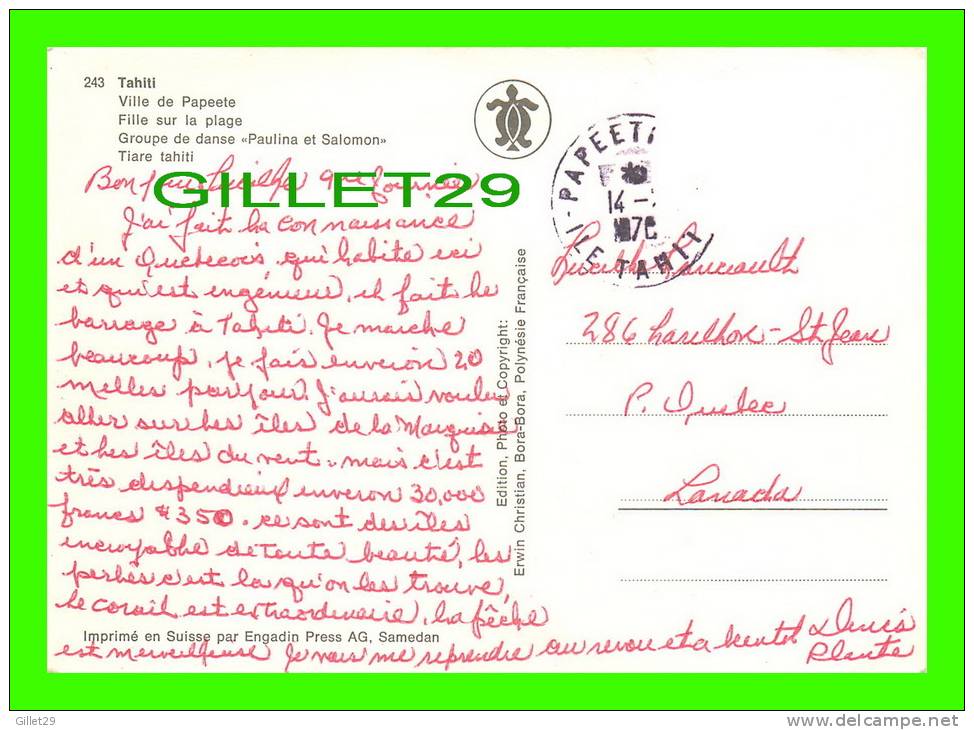 243 Tahiti
Ville de Papeete
Fille sur la plage
Groupe de danse «Paulina et Salomon»
Tiare tahiti
GILLET29
PAPEETE
14
ILE TAHITI
J'ai fait la connaissance
d'un Quebecois qui habite ici
et qui est engénieur, il fait le
barrage à Tahiti. Je marche
beaucoup, je fais environ 20
melles par jour. J'aurais voulu
aller sur les îles de la Marquise
et les îles du vent.. mais c'est
très dispendieux environ 30,000
francs $350. ce sont des îles
incroyable de toute beauté, les
perles c'est la qu'on les trouve,
le corail est extraordinaire, la pêche
est merveilleuse Je vais me reprendre au revou et a bientot Denis
Plante
Edition, Photo et Copyright:
Erwin Christian, Bora-Bora, Polynésie Française
286 - St Jean
P. Quebec
Canada
Imprimé en Suisse par Engadin Press AG, Samedan
Gillet29
www.delcampe.net